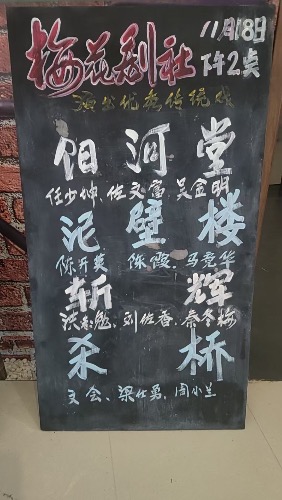 梅花剧社 11月18日
下午2点
演出优秀传统戏
伯 河 堂
任少坤、佐文富、吴金明
泥 壁 楼
陈开英、陈霞、马登华
斩 辉
洪、刘佐香、秦冬梅
杀 桥
文会、梁仕勇、周小兰